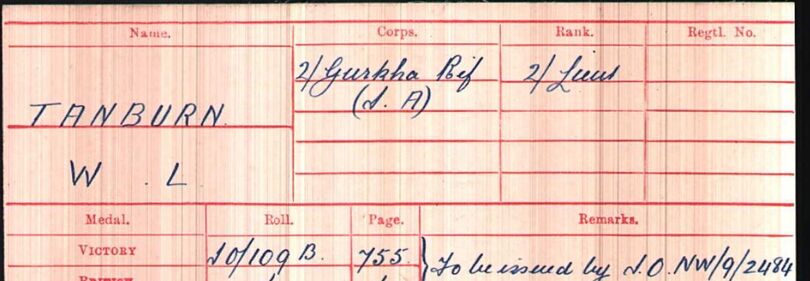 Name. Corps. Rank. Regtl. No.
2/Gurkha Rif 2/Lieut
(I. A)
TANBURN.
W. L
Medal. Roll. Page. Remarks.
VICTORY IO/109 B. 755. } To be issued by I.O. NW/9/2484
BRITISH